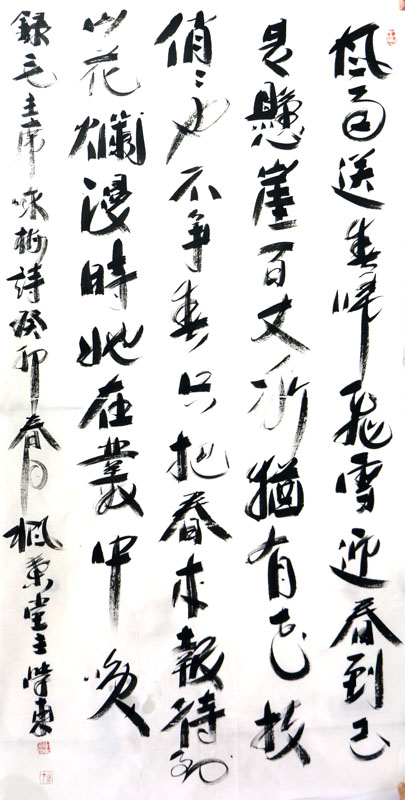 風雨送春歸飛雪迎春到已
是懸崖百丈冰猶有花枝
俏〻也不争春只把春来報待到
山花爛漫時她在叢中咲
録毛主席咏梅詩癸卯春月楓葉堂主